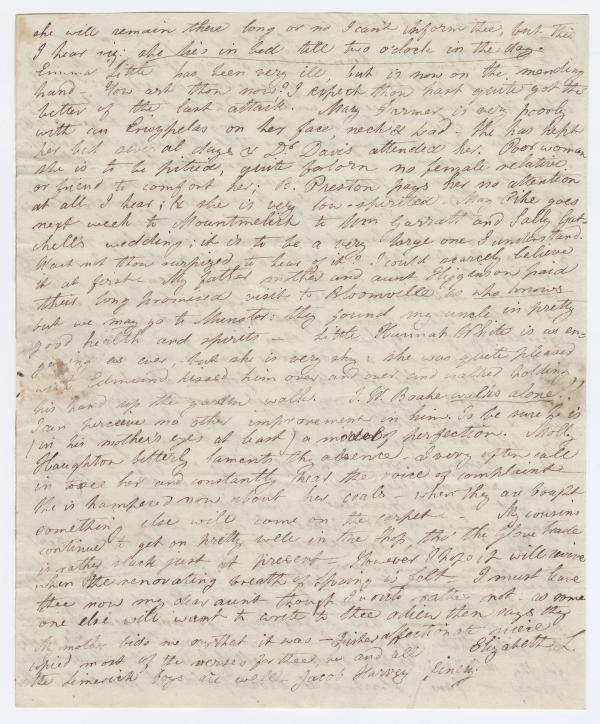 she will remain there long or no I can't inform thee, but this
I hear viz: she lies in bed till two o'clock in the day
Emma Little has been very ill, but is now on the mending
hand – How art thou now? I expect thou hast quite got the
better of the last attack. Mary Farmer is very poorly
with an Erisypelas on her face, neck & head – she has kept
her bed several days & Dr. Davis attended her. Poor woman
she is to be pitied, quite forlorn no female relative
or friend to comfort her; B. Preston pays her no attention
at all I hear; & she is very low-spirited. May Pike goes
next week to Mountmelick to Wm Garratt and Sally Gat
chell's wedding; it is to be a very large one I understand.
Wast not thou surprized to hear of it? I could scarcely believe
it at first – My father mother and aunt Higginson paid
their long promised visit to Bloomville so who knows
but we may go to Munster: they found my uncle in pretty
good health and spirits – Little Hannah White is as en=
gaging as ever, but she is very shy: she was quite pleased
with Edmund kissed him over and over and walked holding
his hand up the garden walk. J. H. Boake walks alone!!
I can perceive no other improvement in him. To be sure he is
(in his mother's eyes at least) a model of perfection. Molly
Haughton bitterly laments thy absence – I very often call
in to see her and constantly hear the voice of complaint
She is hampered now about her coals – when they are bought
something else will come on the carpet – My cousins
continue to get on pretty well in the shop, tho' the glove trade
is rather slack just at present – However I hope it will revive
when the renovating breath of Spring is felt – I must leave
thee now my dear aunt though I would rather not – as some
one else will want to write to thee adieu then says thy
My mother bids me say what it was – Fisher affectionate niece
copied most of the verses for thee, he and all Elizabeth L.
the Limerick boys are well – Jacob Harvey Finch